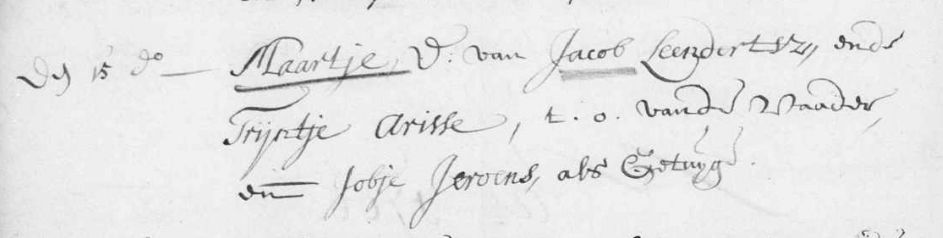 Den 15 do — Maartje, D: van Jacob Leendertsz,, ende
Trijntje Arisse, t. o. vande Vaader,
en Jobje Jeroens, als Getuyge.